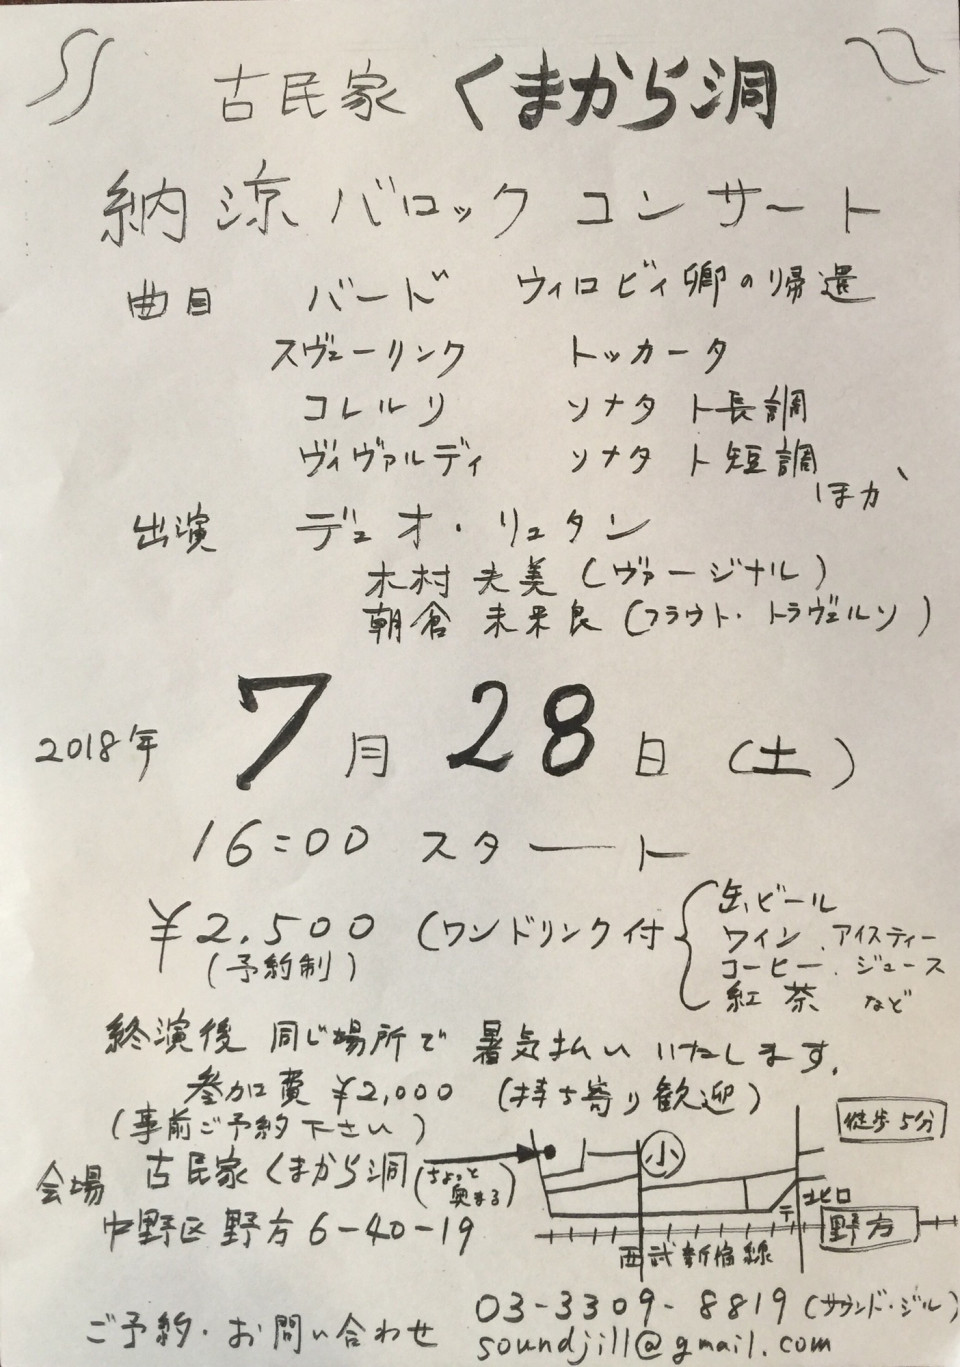 古民家 くまから洞
納涼 バロック コンサート
曲目 バード ウィロビィ卿の帰還
スヴェーリンク トッカータ
コレルリ ソナタ ト長調
ヴィヴァルディ ソナタ ト短調
ほか
出演 デュオ・リュタン
木村 夫美 (ヴァージナル)
朝倉 未来良 (フラウト・トラヴェルソ)
2018年 7月 28日 (土)
16:00 スタート
¥2,500 (ワンドリンク付
缶ビール
ワイン、アイスティー
コーヒー、ジュース
紅茶 など
(予約制)
終演後 同じ場所で 暑気払い いたします。
参加費 ¥2,000 (持ち寄り歓迎)
(事前ご予約下さい)
会場 古民家 くまから洞
(ちょっと
奥まる)
中野区 野方 6-40-19
小
徒歩5分
北口
〒
野方
西武新宿線
ご予約・お問い合わせ
03-3309-8819 (サウンド・ジル)
soundjill@gmail.com